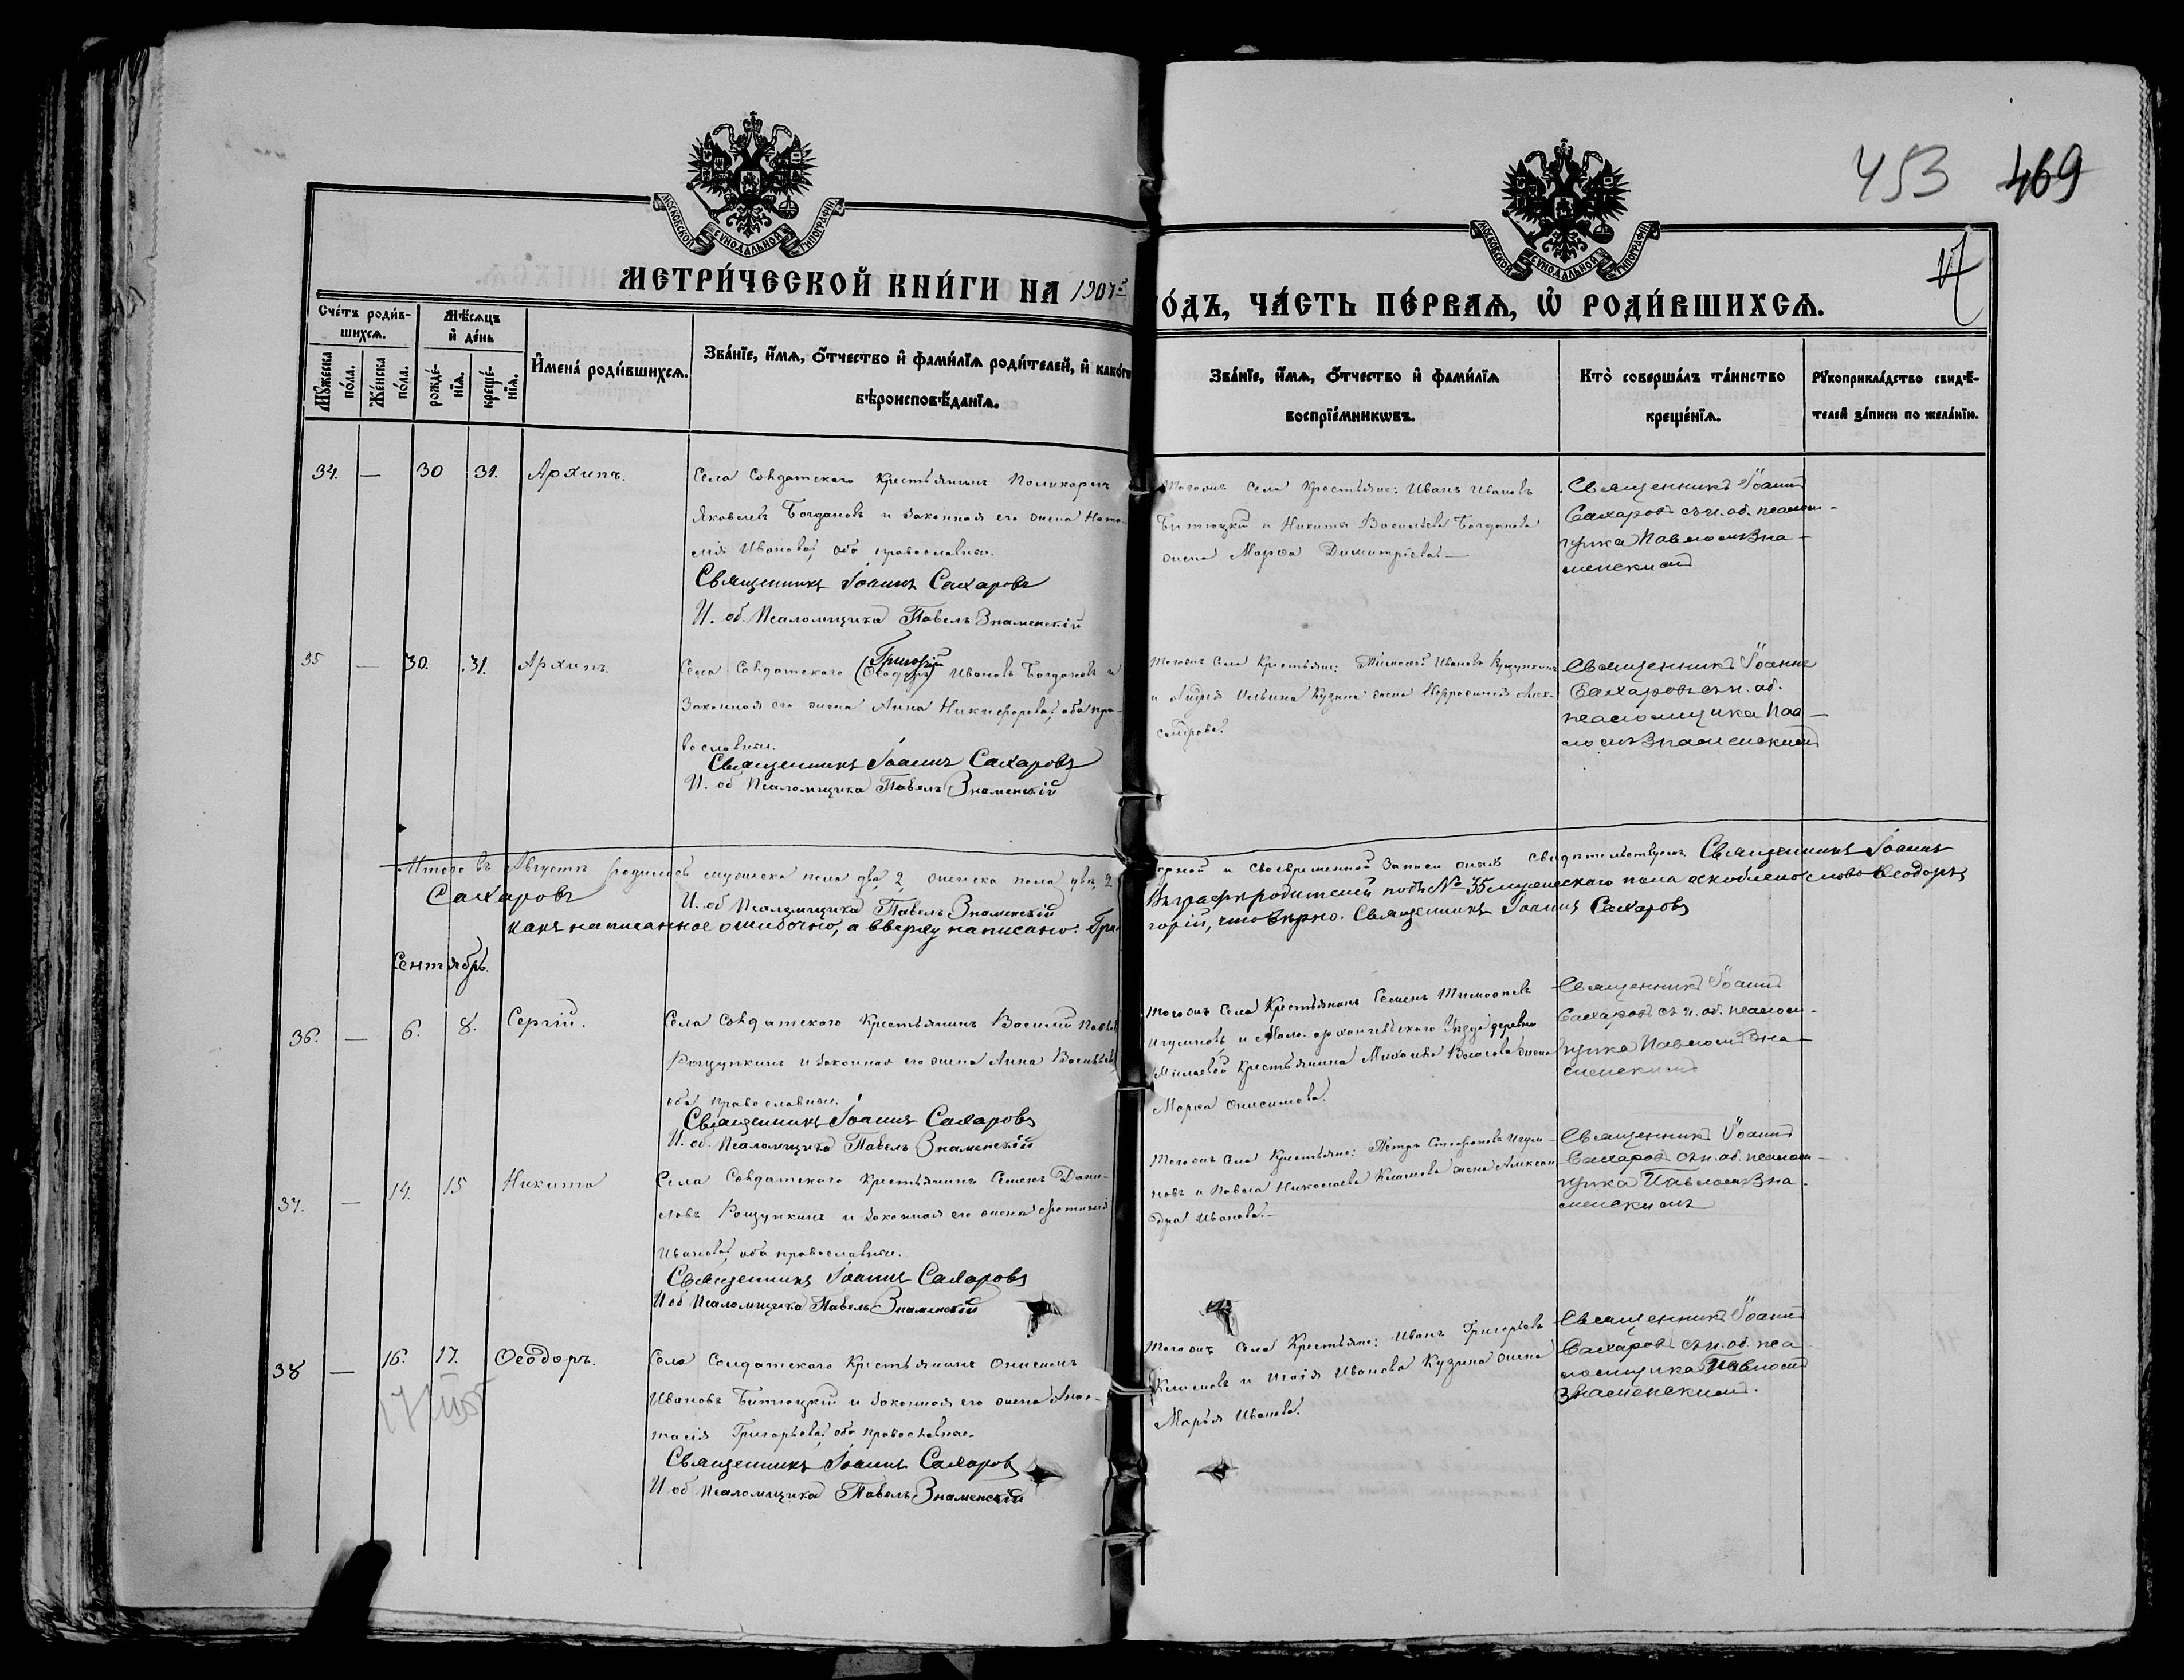 453 469
17
МОСКОВСКОЙ СУНОДАЛЬНОЙ ТИПОГРАФІИ
МОСКОВСКОЙ СУНОДАЛЬНОЙ ТИПОГРАФІИ
МЕТРИ́ЧЕСКОЙ КНИ́ГИ НА 1907й
ГО́ДЪ, ЧА́СТЬ ПЕ́РВАѦ, Ѡ РОДИ́ВШИХСѦ.
Сче́тъ роди́в-
шихсѧ.
Мѣ́сѧцъ
и҆ де́нь
Мꙋ́жеска
по́ла.
Же́нска
по́ла.
рожде́-
нїѧ.
креще́-
нїѧ.
И҆мена̀ роди́вшихсѧ.
Зва́нїе, и҆́мѧ, ѻ҆́тчество и҆ фами́лїѧ роди́телей, и҆ како́гѡ
вѣроисповѣ́данїѧ.
Зва́нїе, и҆́мѧ, ѻ҆́тчество и҆ фами́лїѧ
воспрїе́мникѡвъ.
Кто̀ соверша́лъ та́инство
креще́нїѧ.
Рꙋкоприкла́дство свидѣ́-
телей за́писи по жела́нїю.
34. — 30 31. Архипъ.
Села Солдатскаго Крестьянинъ Поликарпъ
Яковлевъ Богдановъ и законная его жена Ната-
лія Иванова, оба православные.
Священникъ Іоаннъ Сахаровъ
И. об. Псаломщика Павелъ Знаменскій
Тогожъ Села Крестьяне: Иванъ Ивановъ
Битюцкій и Никиты Васильева Богданова
жена Марѳа Димитріева. —
Священникъ Іоаннъ
Сахаровъ съ и. об. псалом-
щика Павломъ Зна-
менскимъ
35 — 30. 31. Архипъ.
Села Солдатскаго (Ѳеодоръ) Григорій Ивановъ Богдановъ и
Законная его жена Анна Никифорова, оба пра-
вославные.
Священникъ Іоаннъ Сахаровъ
И. об Псаломщика Павелъ Знаменскій
Тогожъ Села Крестьяне: Тимоѳей Ивановъ Рощупкинъ
и Андрея Ильина Кузина жена Евфросинія Алек-
сандрова.
Священникъ Іоаннъ
Сахаровъ съ и. об.
псаломщика Пав-
ломъ Знаменскимъ
Итого въ Августѣ родилось мужеска пола два, 2, женска пола два, 2
вѣрной и своевременной Записи симъ свидѣтельствуемъ Священникъ Іоаннъ
Сахаровъ И. об Псаломщика Павелъ Знаменскій
Въ графѣ родителей подъ № 35 мужескаго пола оскоблено слово Ѳеодоръ,
какъ написанное ошибочно, а вверху написано: Гри-
горій, что вѣрно. Священникъ Іоаннъ Сахаровъ
Сентябрь.
36. — 6. 8. Сергій.
Села Солдатскаго Крестьянинъ Василій Павловъ
Рощупкинъ и законная его жена Анна Васильева,
оба православные.
Священникъ Іоаннъ Сахаровъ
И. об. Псаломщика Павелъ Знаменскій
Тогожъ Села Крестьянинъ Семенъ Тимоѳеевъ
Игумновъ и Мало-архангельскаго Уѣзда деревни
Крестьянина Михаила Власова жена
Марѳа Онисимова.
Священникъ Іоаннъ
Сахаровъ съ и. об. псалом-
щика Павломъ Зна-
менскимъ
37. — 14. 15 Никита
Села Солдатскаго Крестьянинъ Семенъ Дани-
ловъ Рощупкинъ и законная его жена Фотинія
Иванова, оба православные.
Священникъ Іоаннъ Сахаровъ
И об Псаломщика Павелъ Знаменскій
Тогожъ Села Крестьяне: Петръ Стефановъ Игум-
новъ и Павла Николаева Климова жена Алексан-
дра Иванова. —
Священникъ Іоаннъ
Сахаровъ съ и. об. псалом-
щика Павломъ Зна-
менскимъ
38 — 16. 17. Ѳеодоръ.
Села Солдатскаго Крестьянинъ Онисимъ
Ивановъ Битюцкій и законная его жена Анас-
тасія Григорьева, оба православные.
Священникъ Іоаннъ Сахаровъ
И об Псаломщика Павелъ Знаменскій
Тогожъ Села Крестьяне: Иванъ Григорьевъ
Климовъ и Ивана Кузина жена
Марья Иванова.
Священникъ Іоаннъ
Сахаровъ съ и. об. пса
ломщика Павломъ
Знаменскимъ.